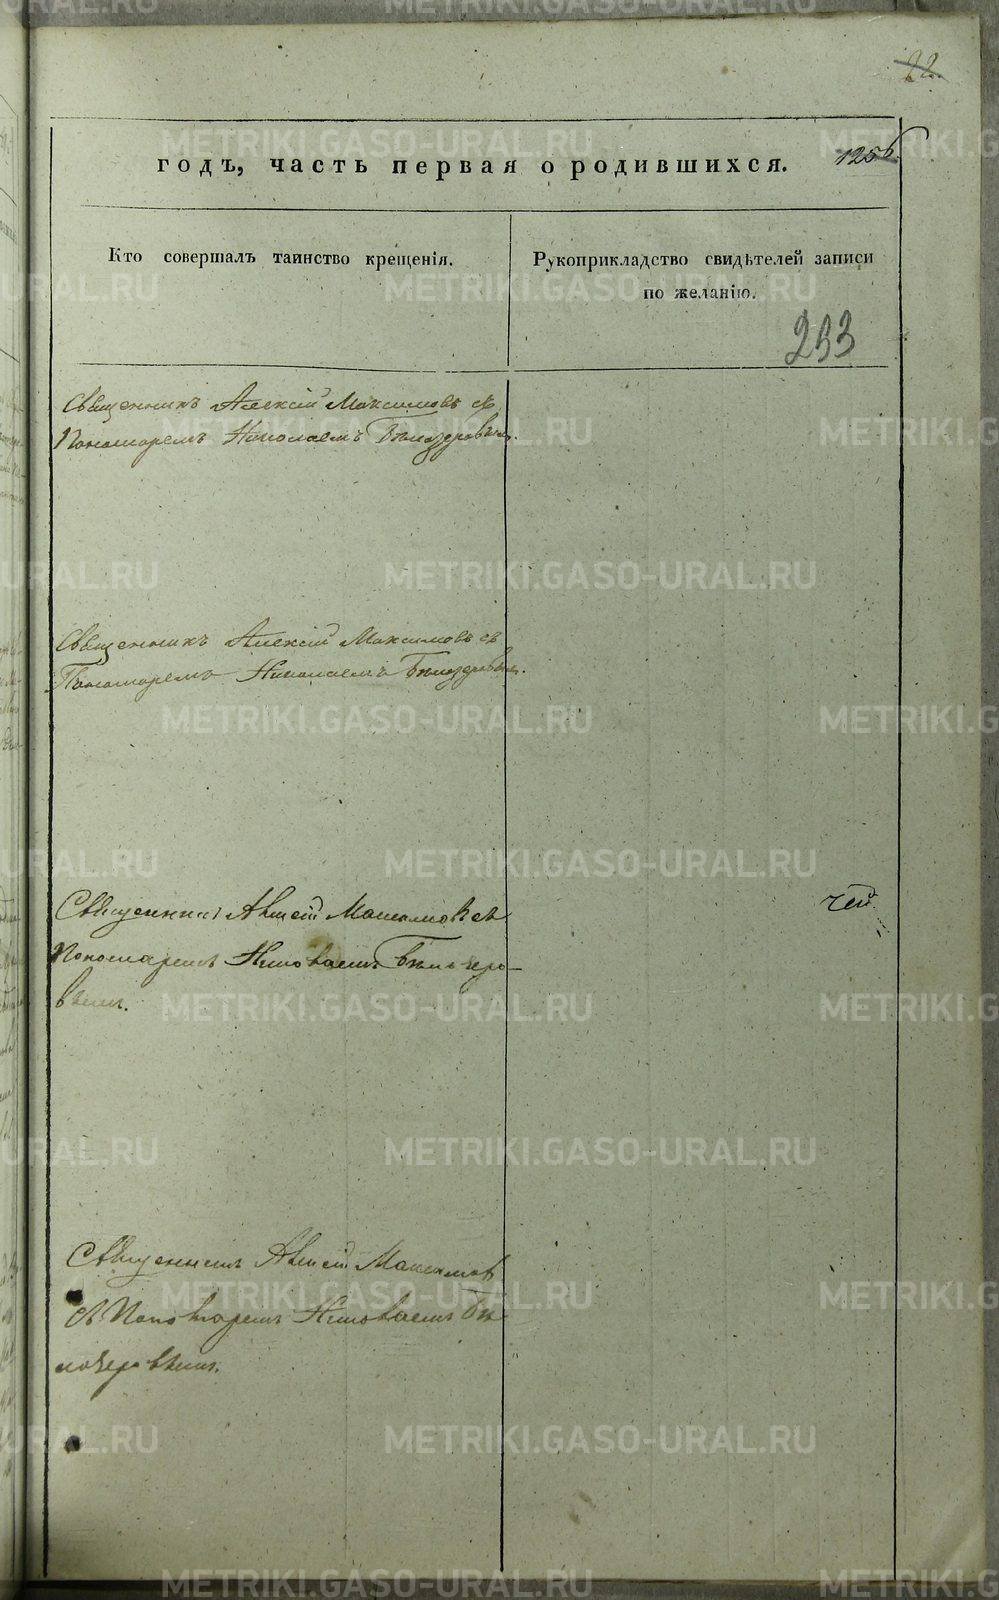 22.
годъ, часть первая о родившихся.
1256
Кто совершалъ таинство крещенія.
Рукоприкладство свидѣтелей записи
по желанію.
233
Священникъ Алексій Максимовъ съ
Пономаремъ Николаемъ Бѣлозеровымъ.
Священникъ Алексій Максимовъ съ
Пономаремъ Николаемъ Бѣлозеровымъ.
Священникъ Алексій Максимовъ съ
Пономаремъ Николаемъ Бѣлозеро-
вымъ.
чей
Священникъ Алексій Максимовъ
съ Пономаремъ Николаемъ Бѣ-
лозеровымъ.
METRIKI.GASO-URAL.RU